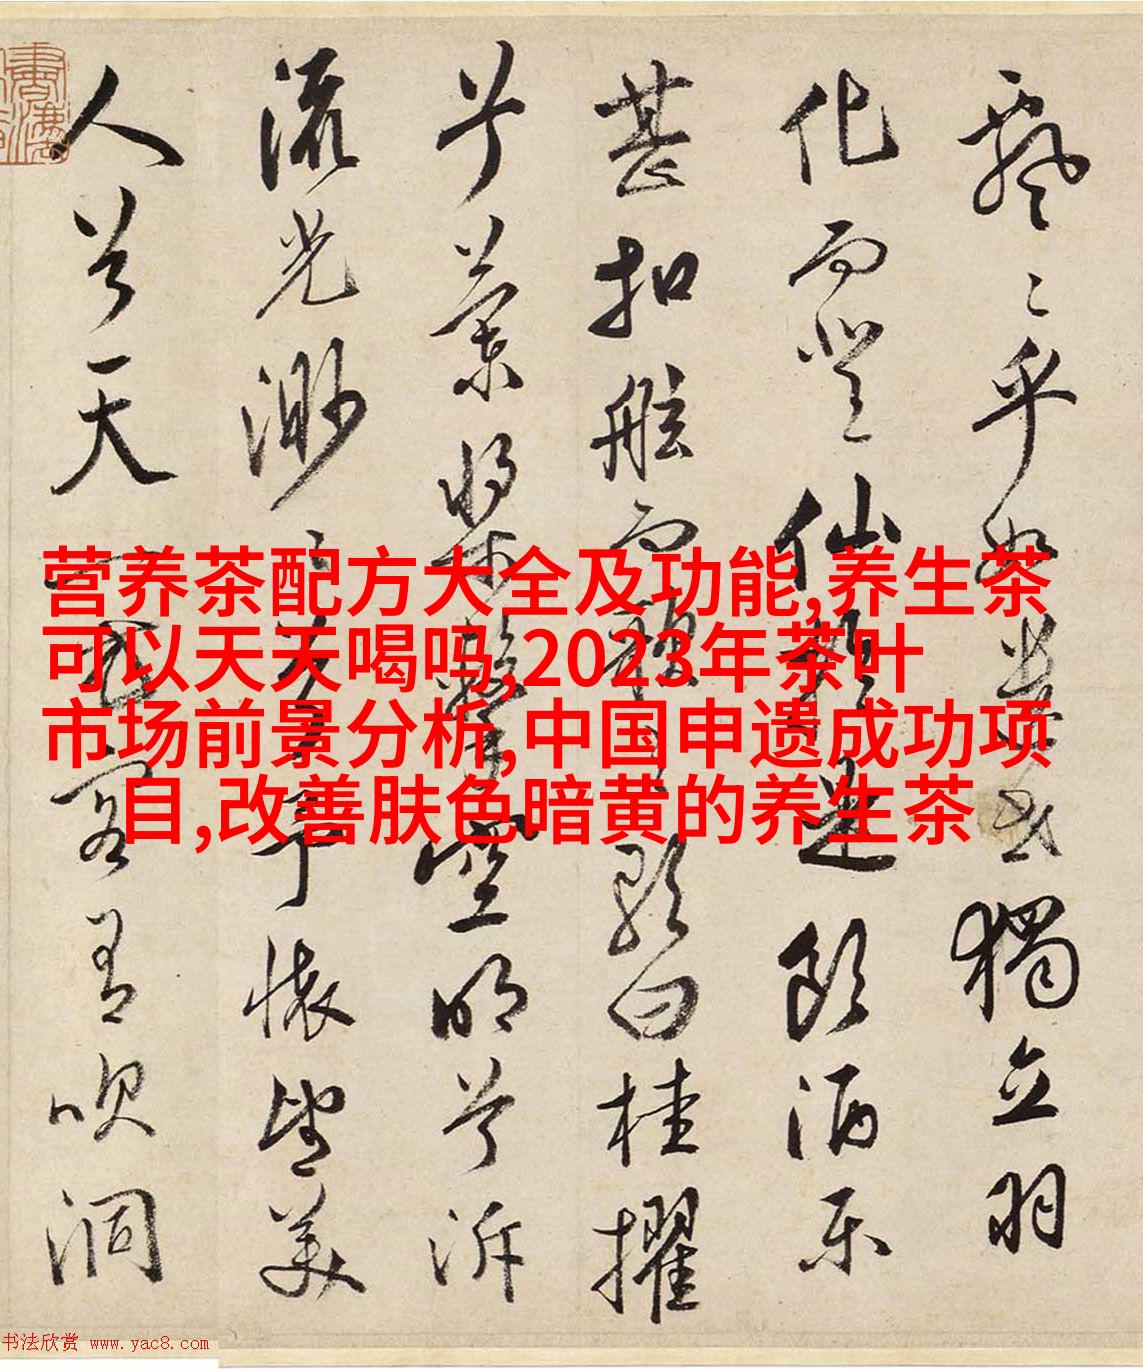 飘〻乎如遗世獨立羽
化而登仙於是飲酒乐
甚扣舷而歌曰桂擢
兮蘭槳擊空明兮泝
流光渺〻兮予懷望美
人兮天一方客有吹洞
营养茶配方大全及功能,养生茶
可以天天喝吗,2023年茶叶
市场前景分析,中国申遗成功项
目,改善肤色暗黄的养生茶
书法欣赏 www.yac8.com